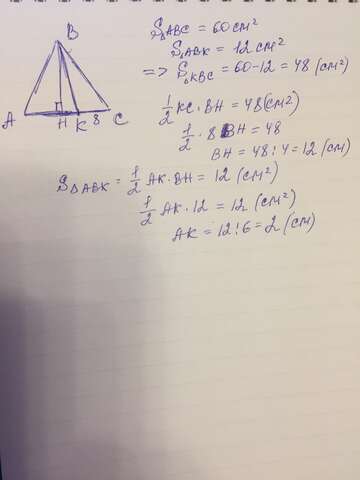 B
A H K 8 C
S△ABC = 60 см²
S△ABK = 12 см²
=> S△KBC = 60-12 = 48 (см²)
1/2 KC · BH = 48 (см²)
1/2 · 8 BH = 48
BH = 48 : 4 = 12 (см)
S△ABK = 1/2 AK · BH = 12 (см²)
1/2 AK · 12 = 12 (см²)
AK = 12 : 6 = 2 (см)